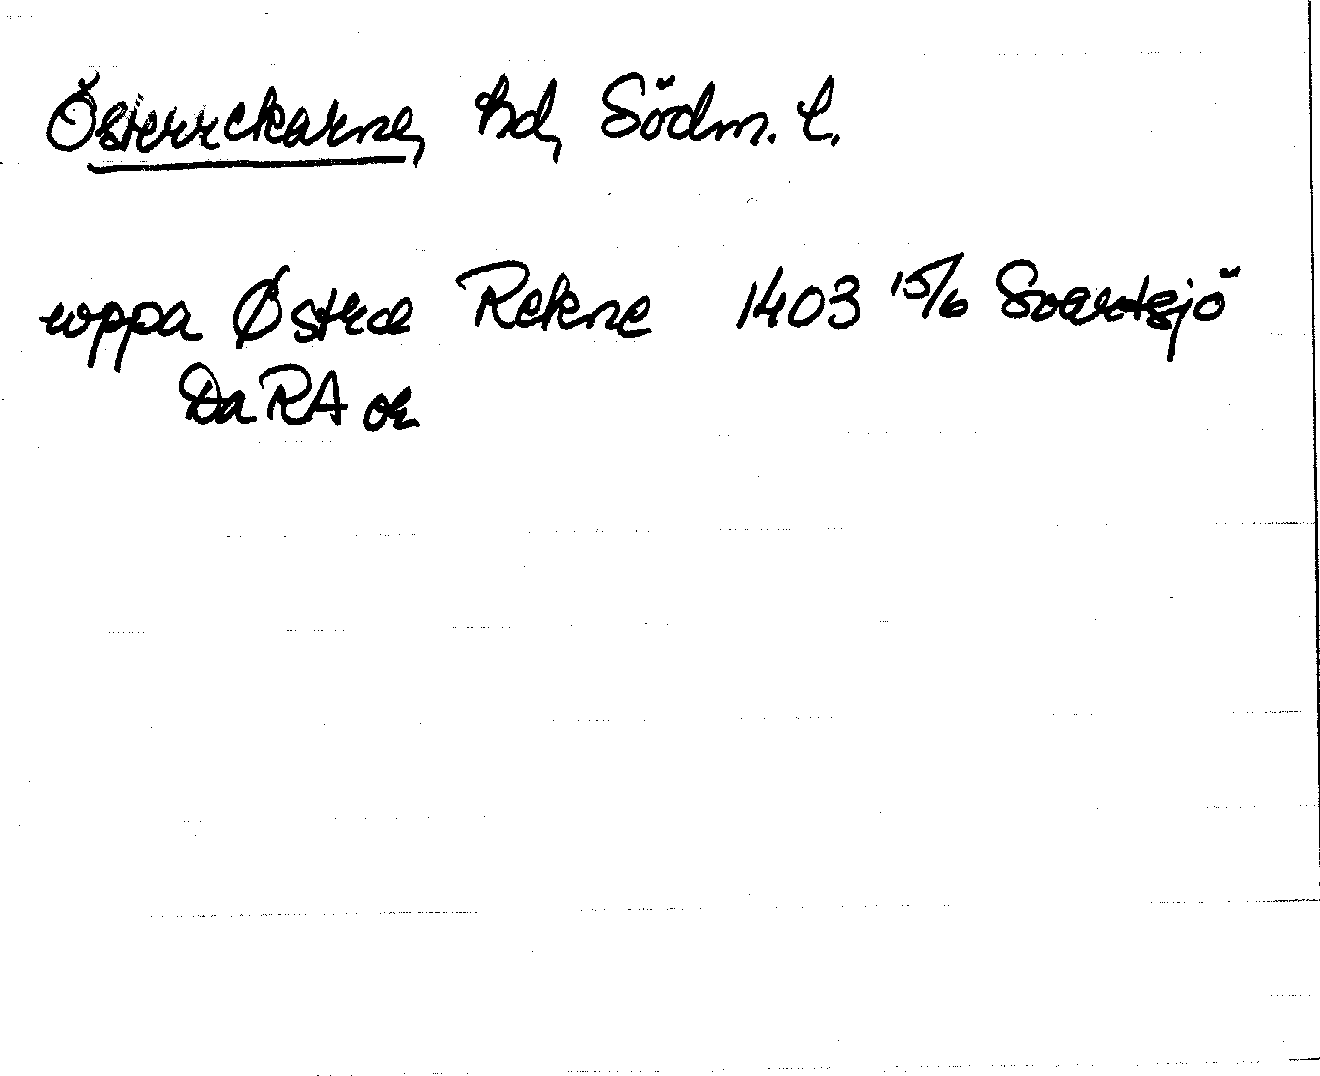 Österrekarne, hd, Södm. l.
uppa Østræ Rekne 1403 15/6 Svartsjö
DaRA or